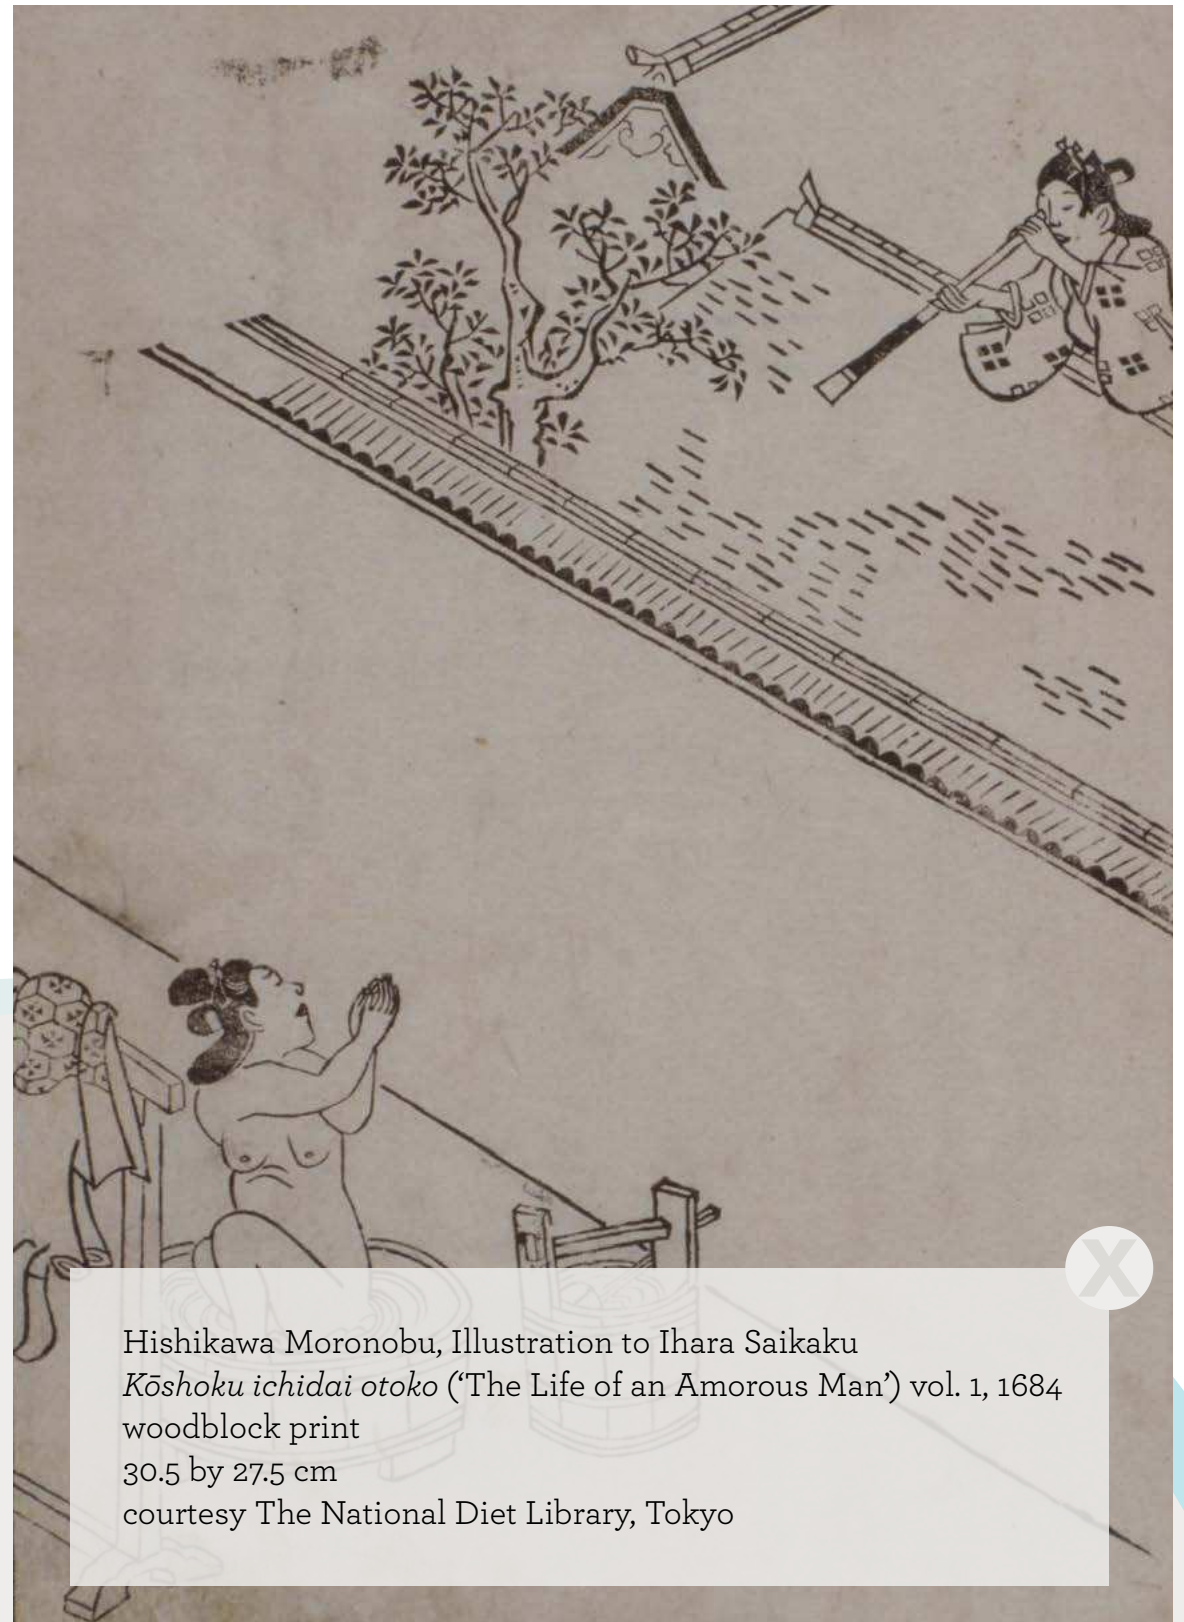 Hishikawa Moronobu, Illustration to Ihara Saikaku
Kōshoku ichidai otoko (‘The Life of an Amorous Man’) vol. 1, 1684
woodblock print
30.5 by 27.5 cm
courtesy The National Diet Library, Tokyo
X